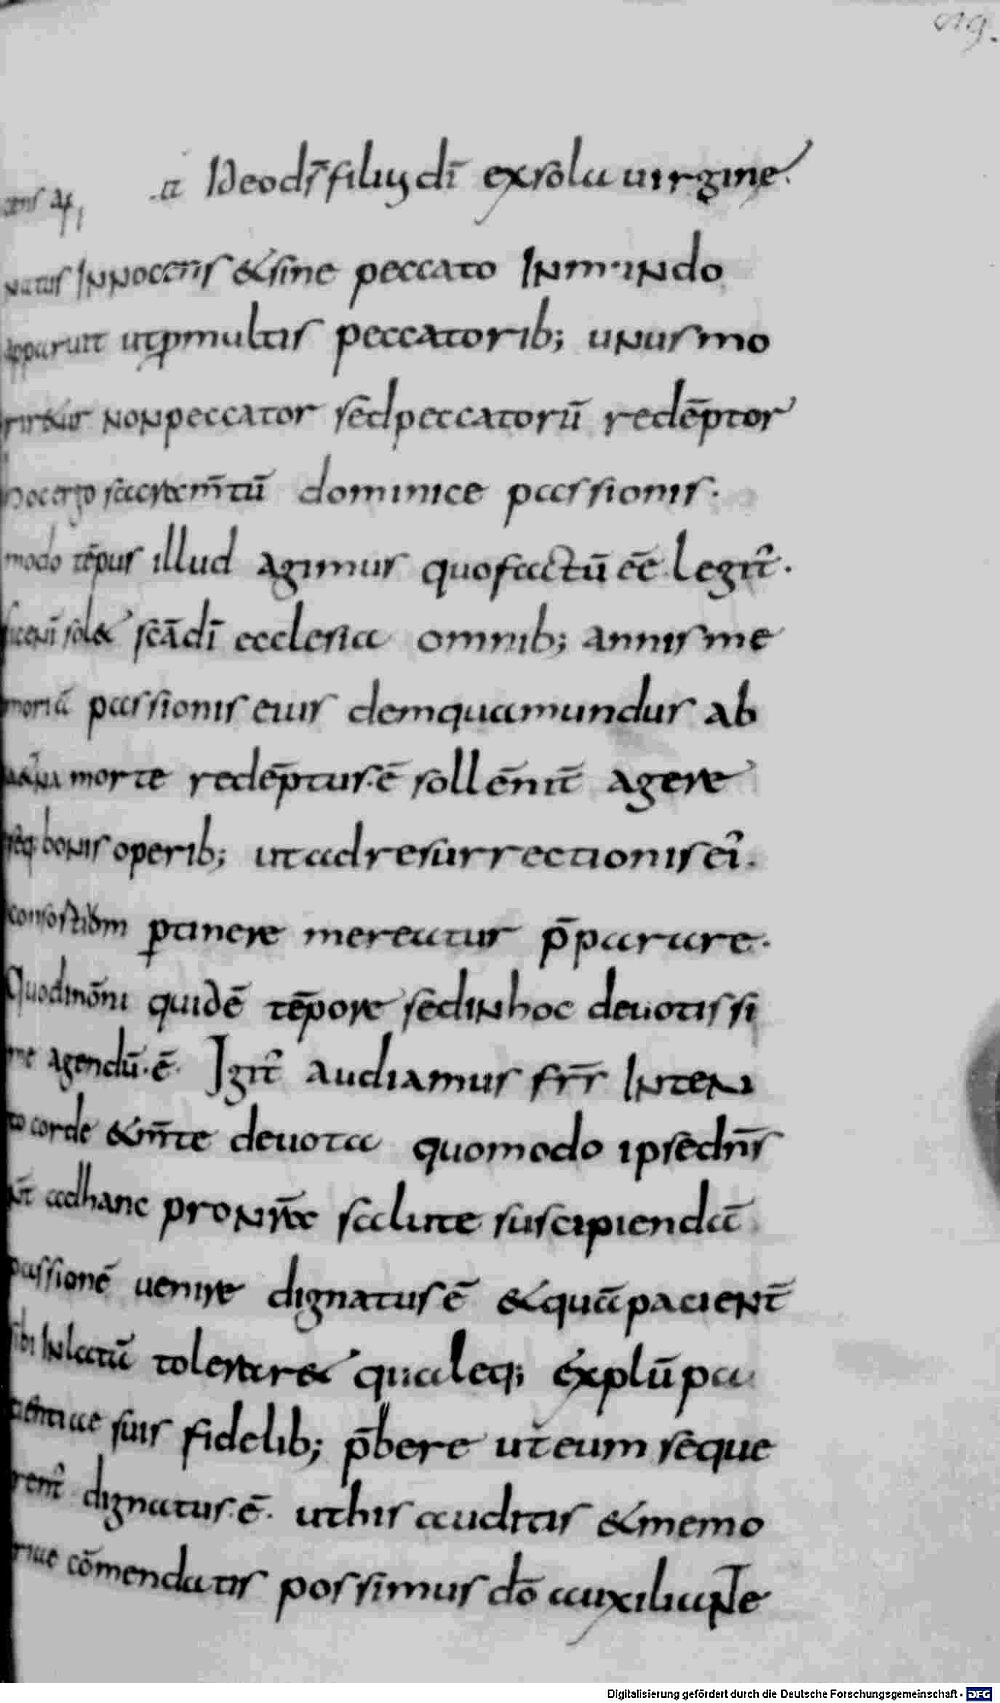 Ideo dr̄ filius dī ex sola uirgine.
natus Innocens & sine peccato In mundo
apparuit ut p multis peccatorib; unus mo
rir&ur non peccator sed peccatorū redēptor
hoc ergo sacram̄tū dominice passionis.
modo tēpus illud agimus quo factū eē legit̄.
sicenī sol& scā dī ecclesia omnib; annis me
moriā passionis eius de mqua mundus ab
morte redēptus ē sollēnit̄ agere
bonis operib; ut ad resurrectionis eī.
consortium ptinere mereatur p̄parare.
Quod in ōni quidē tēpore sed in hoc deuotissi
me agendū ē. Igit̄ audiamus frr̄ Inten
to corde & m̄te deuota quomodo ipse dn̄s
nt̄ ad hanc pro nr̄ae salute suscipiendā
passionē uenire dignatus ē & quā pacient̄
sibi Inlatū tolerar& qualeq; explū pa
cientiae suis fidelib; p̄bere ut eum seque
rent̄ dignatus ē. ut his auditis & memo
riae cōmendatis possimus dō auxiliante